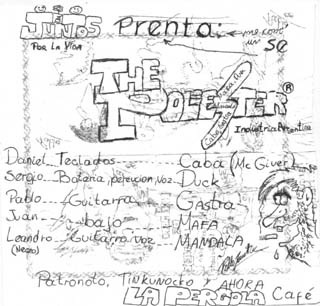 JUNTOS
POR LA VIDA
Prenta:
me comí
un SE
THE
POLESTER®
Industria Argentina
Daniel Teclados Caba (Mc Giver)
Sergio Bateria, percucion, voz Duck
Pablo Guitarra Gastra
Juan bajo MAFA
Leandro Guitarra voz MANDACA
(Negro)
Patronoto, Tinkunocto y AHORA
LA PERGOLA Café